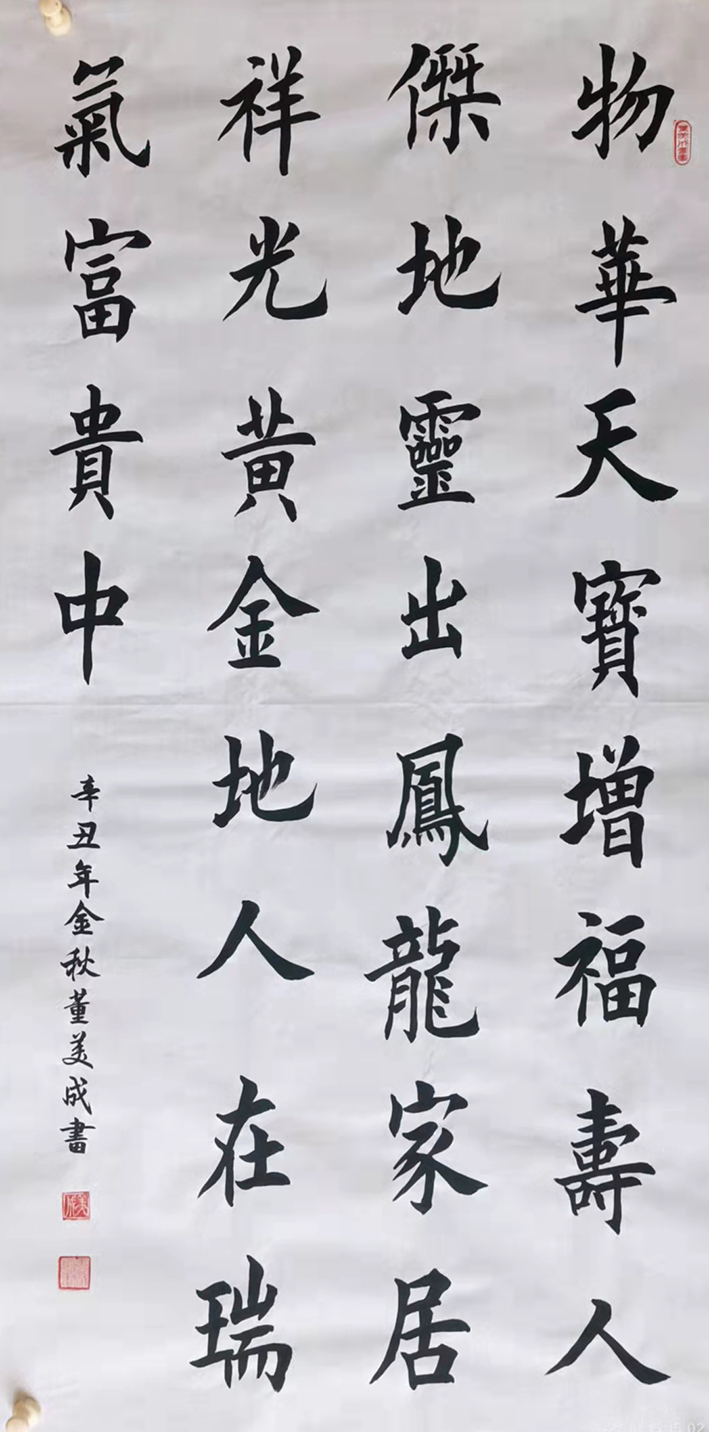 物華天寶增福壽人
傑地靈出鳳龍家居
祥光黃金地人在瑞
氣富貴中
辛丑年金秋董美成書